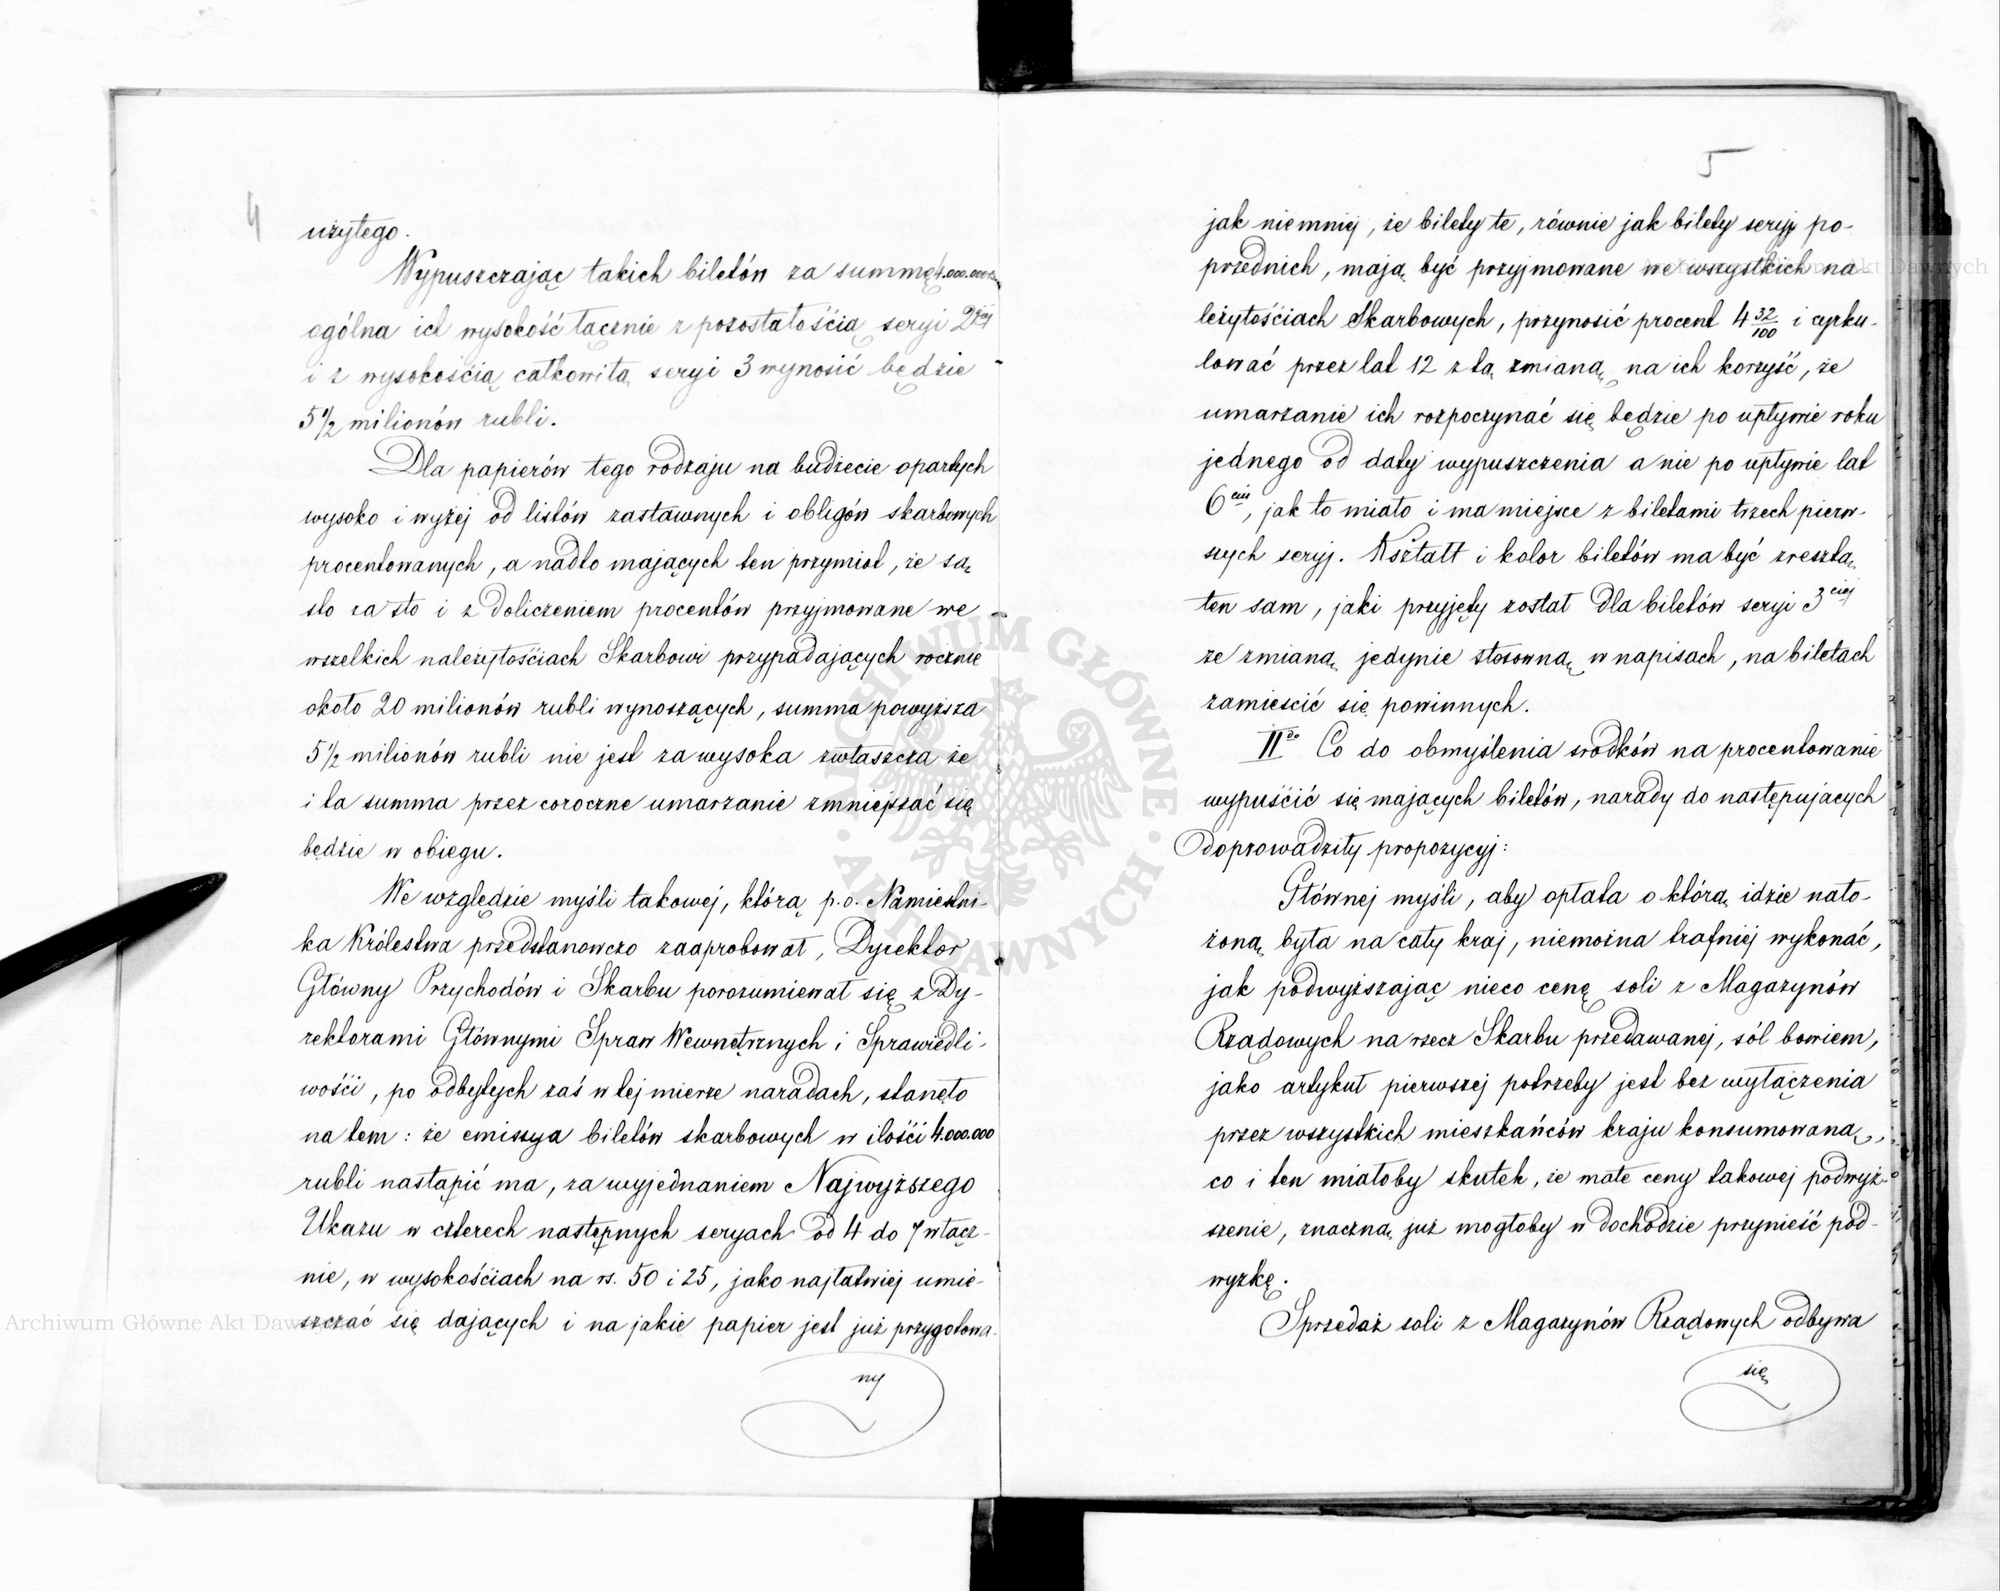 4
użytego.
Wypuszczając takich biletów za summę 4.000.000 rs.
ogólna ich wysokość łącznie z pozostałością seryi 2giej
i z wysokością całkowitą seryi 3 wynosić będzie
5 1/2 milionów rubli.
Dla papierów tego rodzaju na budżecie opartych
wysoko i wyżej od listów zastawnych i obligów skarbowych
procentowanych, a nadto mających ten przymiot, że są
sto za sto i z doliczeniem procentów przyjmowane we
wszelkich należytościach Skarbowi przypadających rocznie
około 20 milionów rubli wynoszących, summa powyższa
5 1/2 milionów rubli nie jest za wysoka zwłaszcza że
i ta summa przez coroczne umarzanie zmniejszać się
będzie w obiegu.
We względzie myśli takowej, którą p.o. Namiestni-
ka Królestwa przedstanowczo zaaprobował, Dyrektor
Główny Przychodów i Skarbu porozumiewał się z Dy-
rektorami Głównymi Spraw Wewnętrznych i Sprawiedli-
wości, po odbytych zaś w tej mierze naradach, stanęło
na tem: że emissya biletów skarbowych w ilości 4.000.000
rubli nastąpić ma, za wyjednaniem Najwyższego
Ukazu w czterech następnych seryach od 4 do 7 włącz-
nie, w wysokościach na rs. 50 i 25, jako najłatwiej umie-
szczać się dających i na jakie papier jest już przygotowa-
ny
5
jak niemniej, że bilety te, równie jak bilety seryj po-
przednich, mają być przyjmowane we wszystkich na-
leżytościach Skarbowych, przynosić procent 4 32/100 i cyrku-
lować przez lat 12 z tą zmianą na ich korzyść, że
umarzanie ich rozpoczynać się będzie po upływie roku
jednego od daty wypuszczenia a nie po upływie lat
6ciu, jak to miało i ma miejsce z biletami trzech pierw-
szych seryj. Kształt i kolor biletów ma być zresztą
ten sam, jaki przyjęty został dla biletów seryi 3ciej
ze zmianą jedynie stosowną w napisach, na biletach
zamieścić się powinnych.
IIdo Co do obmyślenia srodków na procentowanie
wypuścić się mających biletów, narady do następujacych
doprowadziły propozycyj:
Głównej myśli, aby opłata o którą idzie nało-
żoną była na cały kraj, niemożna trafniej wykonać,
jak podwyższając nieco cenę soli z Magazynów
Rządowych na rzecz Skarbu przedawanej, sól bowiem,
jako artykuł pierwszej potrzeby jest bez wyłączenia
przez wszystkich mieszkańców kraju konsumowaną,
co i ten miałoby skutek, że małe ceny takowej podwyż-
szenie, znaczną już mogłoby w dochodzie przynieść pod-
wyżkę.
Sprzedaż soli z Magazynów Rządowych odbywa
się
Archiwum Główne Akt Dawnych
Archiwum Główne Akt Dawnych
ARCHIWUM GŁÓWNE AKT DAWNYCH